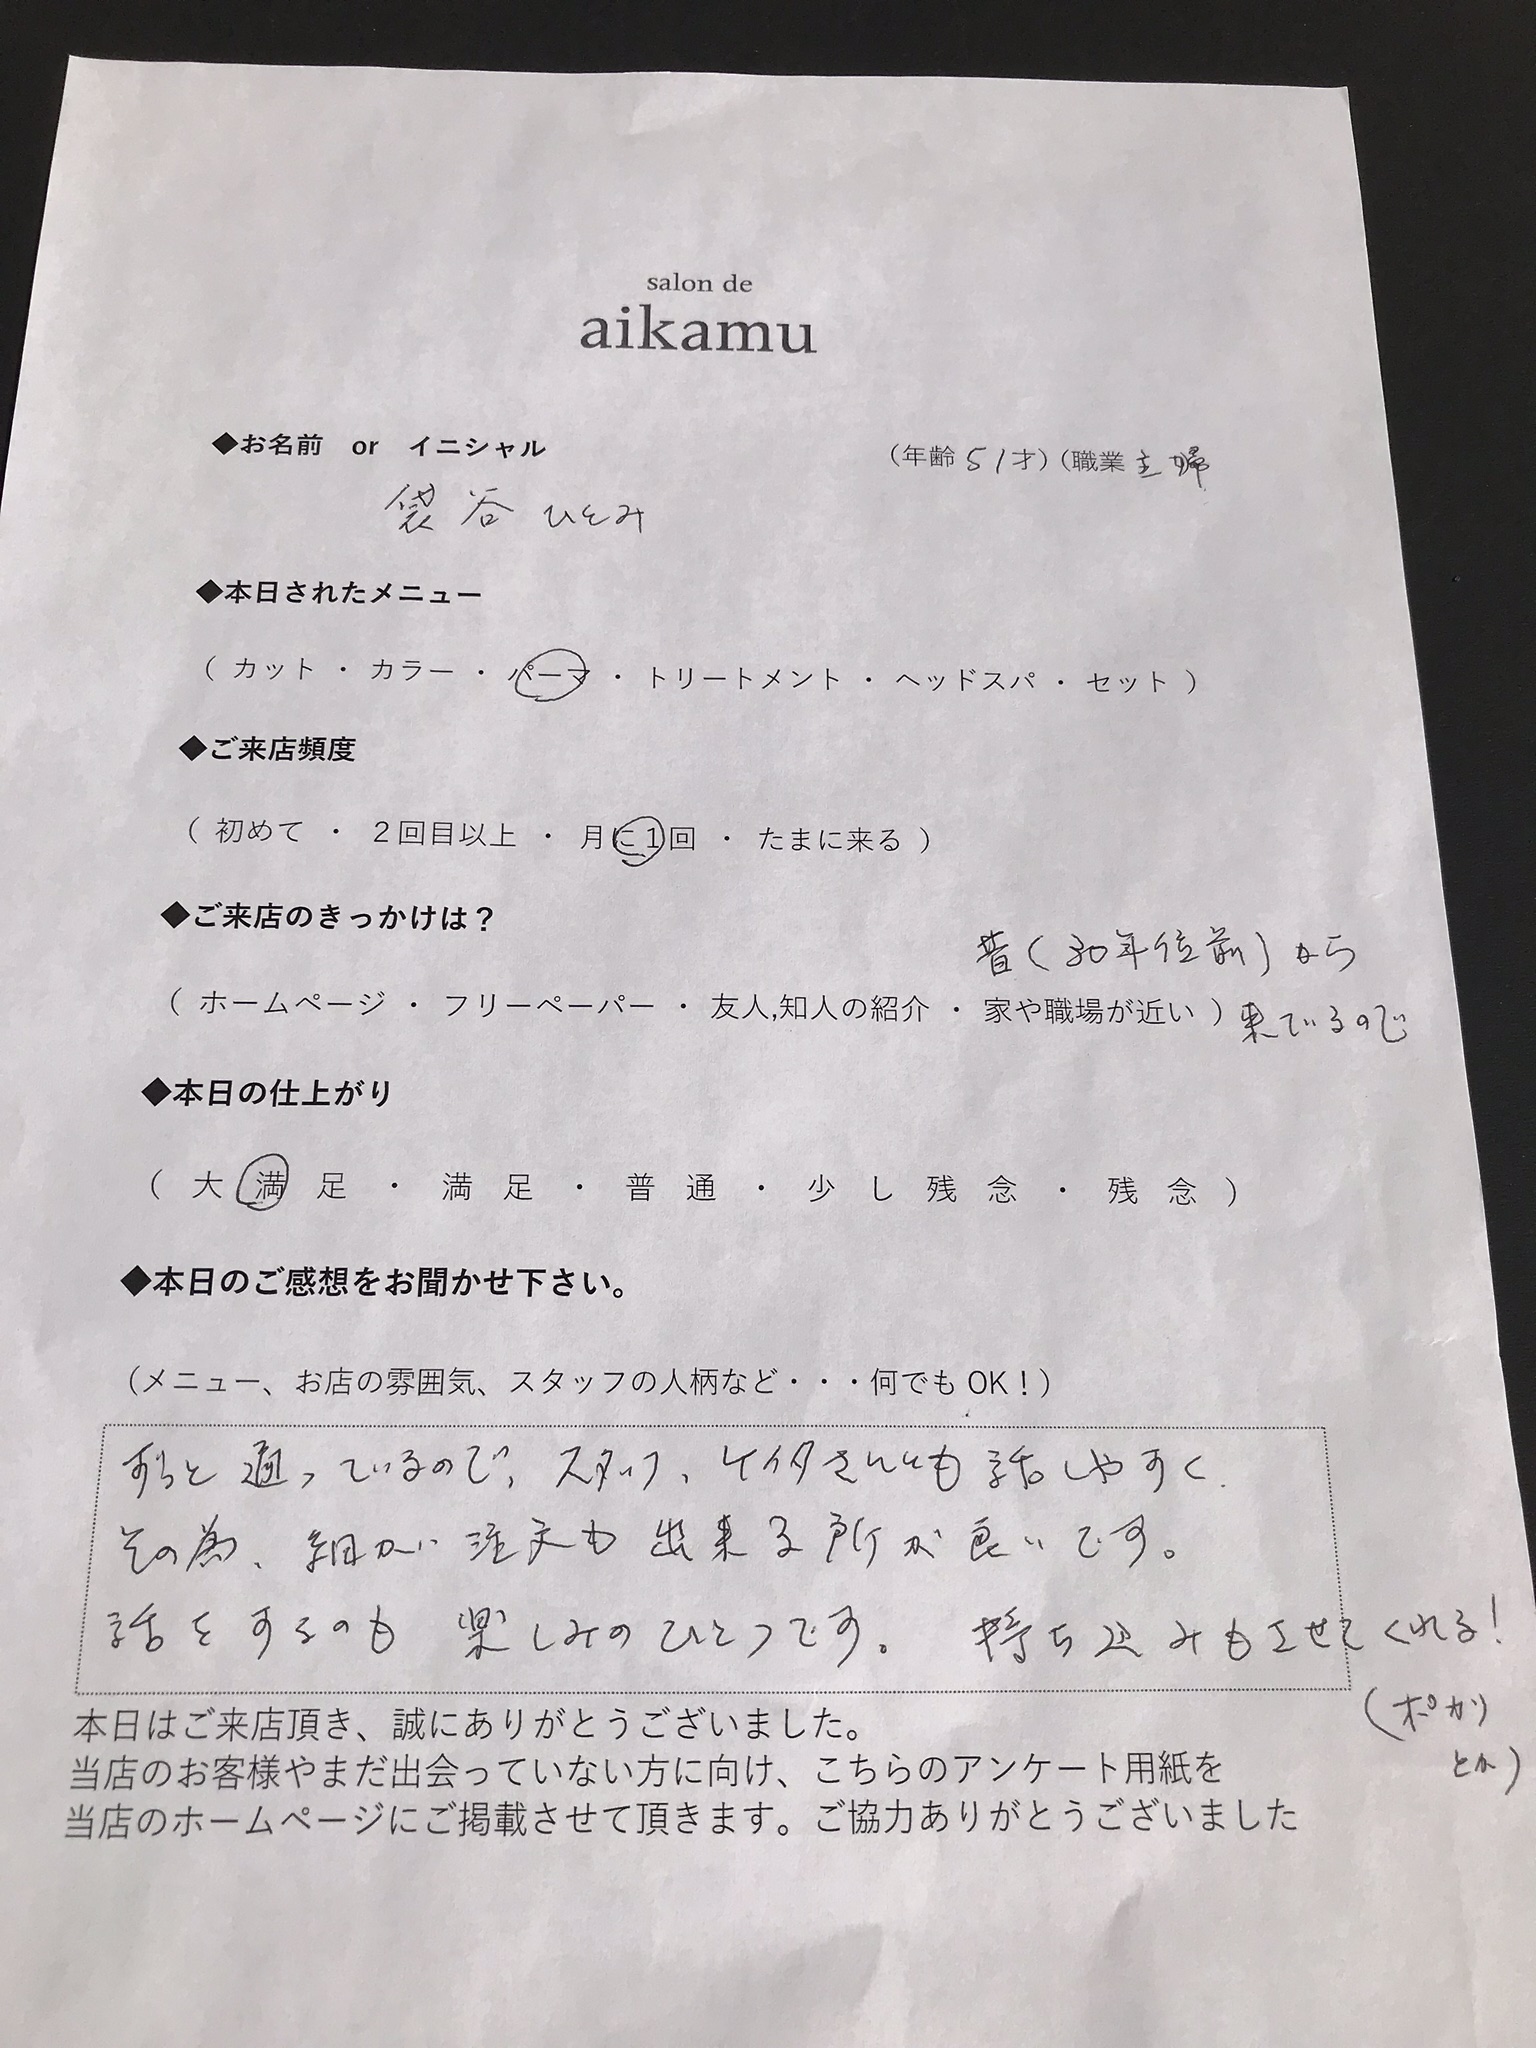 salon de
aikamu
◆お名前 or イニシャル
(年齢 51才)(職業 主婦
袋谷 ひとみ
◆本日されたメニュー
( カット ・ カラー ・ パーマ ・ トリートメント ・ ヘッドスパ ・ セット )
◆ご来店頻度
( 初めて ・ 2回目以上 ・ 月に1回 ・ たまに来る )
◆ご来店のきっかけは?
昔(30年位前)から
( ホームページ ・ フリーペーパー ・ 友人,知人の紹介 ・ 家や職場が近い ) 来ているので
◆本日の仕上がり
( 大 満 足 ・ 満 足 ・ 普 通 ・ 少 し 残 念 ・ 残 念 )
◆本日のご感想をお聞かせ下さい。
(メニュー、お店の雰囲気、スタッフの人柄など・・・何でも OK!)
ずっと通っているので、スタッフ、ケイタさんとも話しやすく
その為、細かい注文も出来る所が良いです。
話をするのも楽しみのひとつです。 持ち込みもさせてくれる!
(ポカリ
とか)
本日はご来店頂き、誠にありがとうございました。
当店のお客様やまだ出会っていない方に向け、こちらのアンケート用紙を
当店のホームページにご掲載させて頂きます。ご協力ありがとうございました